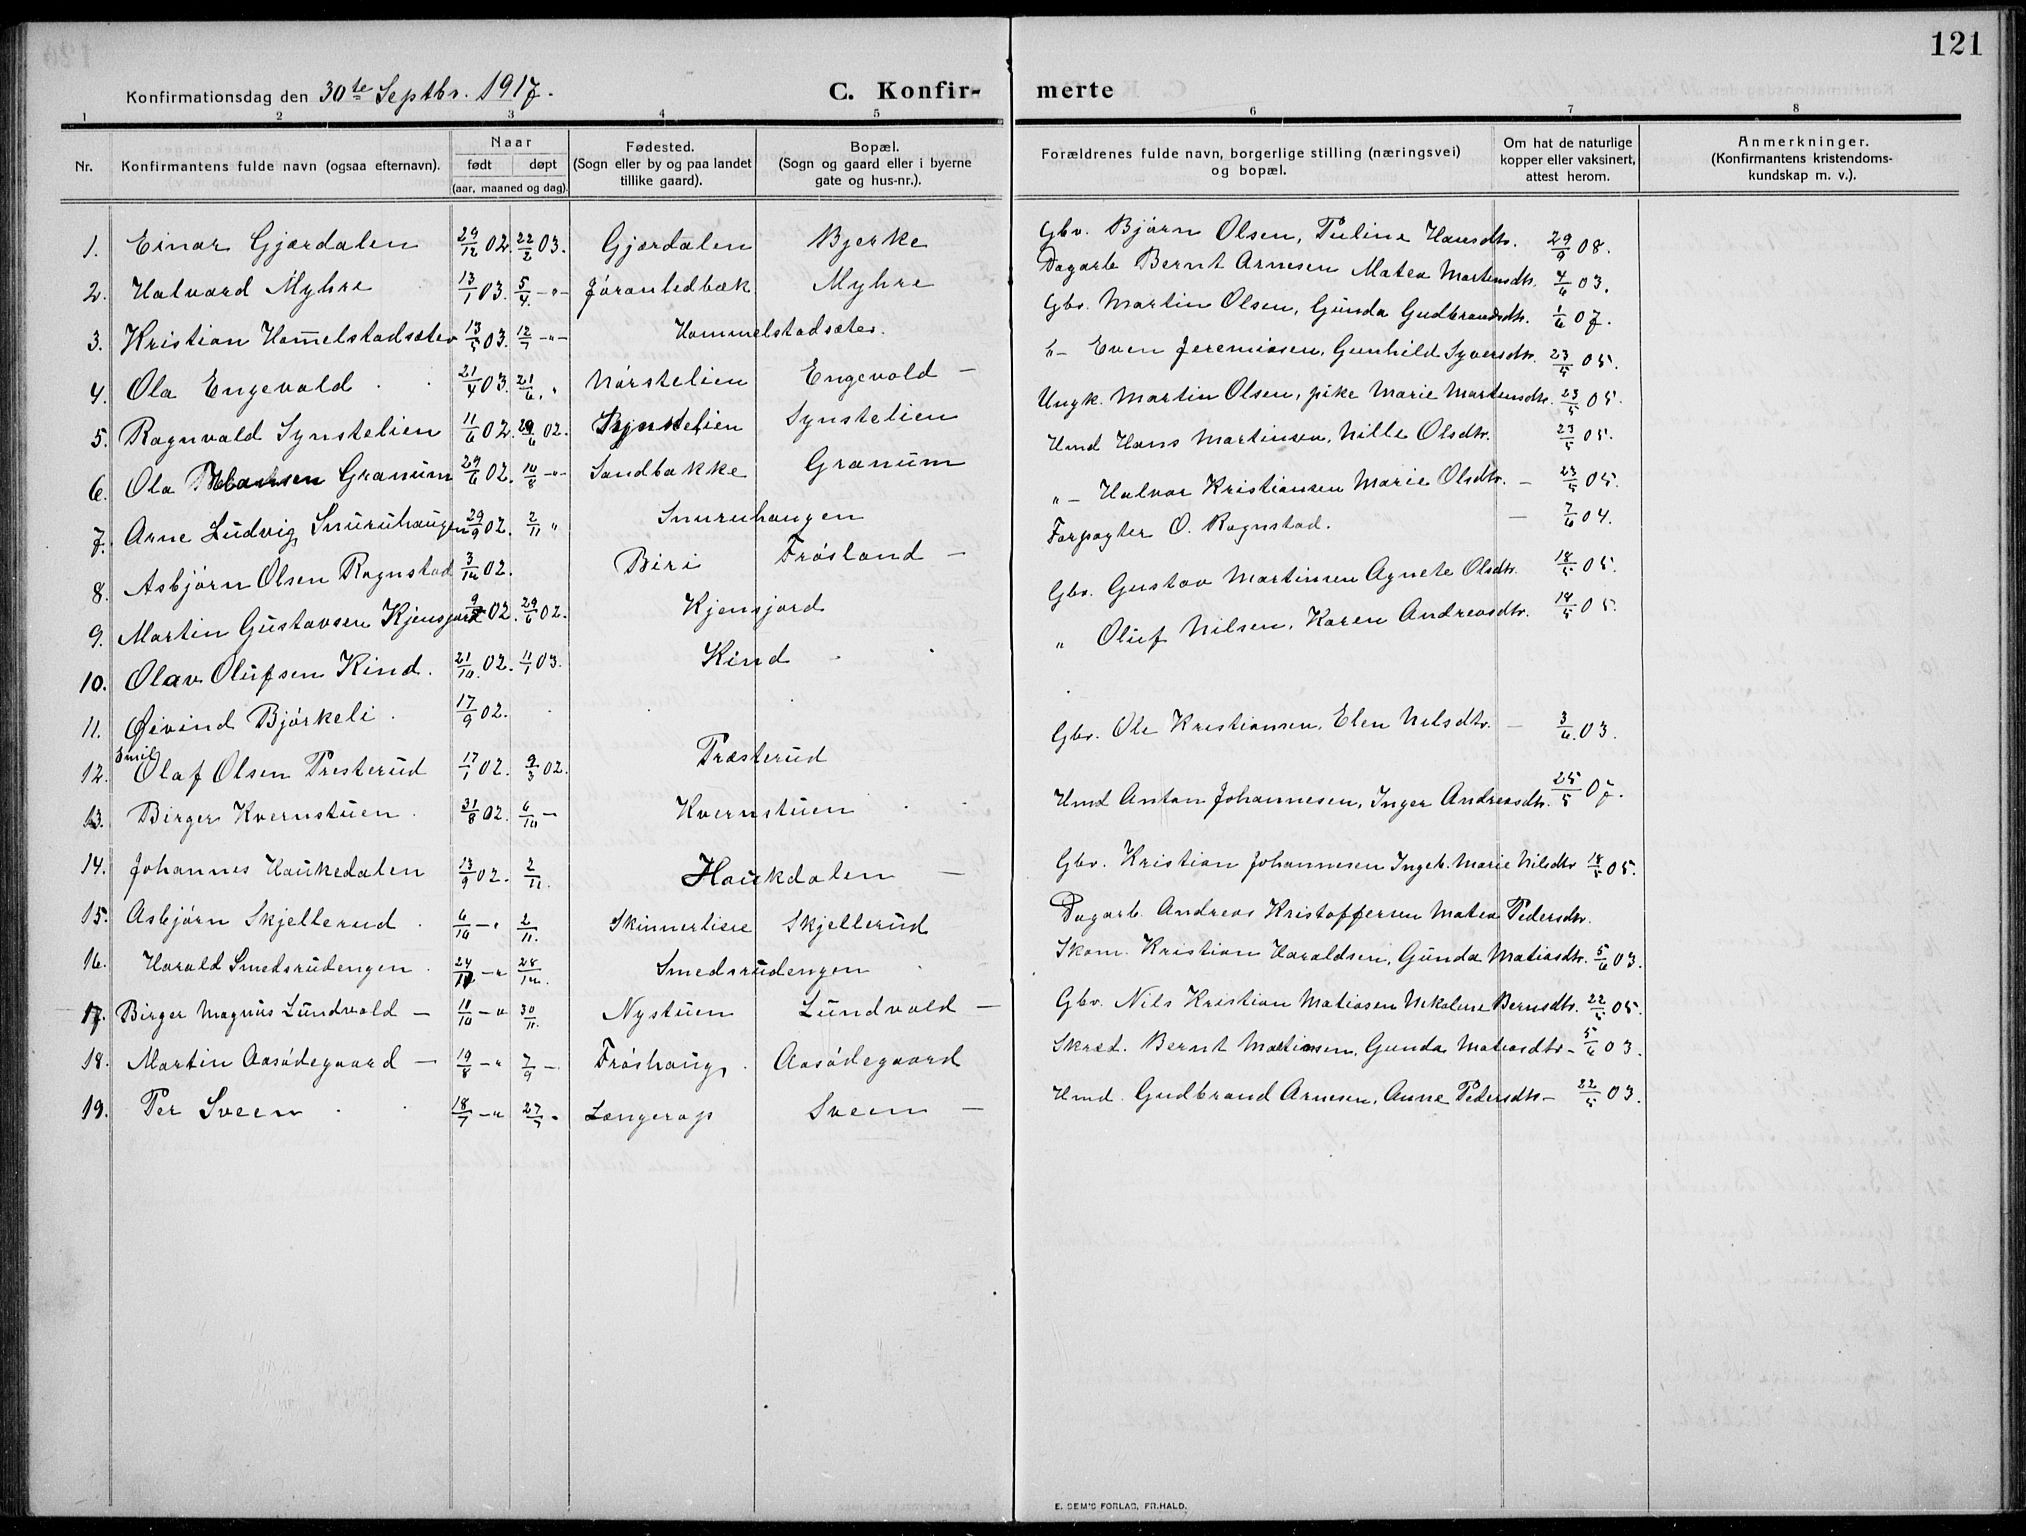 121
Konfirmationsdag den 30te Septbr. 1917. C. Konfir- merte
1 2 3 4 5 6 7 8
Nr. Konfirmantens fulde navn (ogsaa efternavn). Naar født døpt (aar, maaned og dag). Fødested. (Sogn eller by og paa landet tillike gaard). Bopæl. (Sogn og gaard eller i byerne gate og hus-nr.). Forældrenes fulde navn, borgerlige stilling (næringsvei) og bopæl. Om hat de naturlige kopper eller vaksinert, attest herom. Anmerkninger. (Konfirmantens kristendoms- kundskap m. v.).
1. Einar Gjærdalen 29/12 02. 22/2 03. Gjærdalen Bjerke Gbr. Bjørn Olsen, Puline Hansdtr. 29/9 08.
2. Halvard Myhre 13/1 03. 5/4 -"- Jøranledbæk Myhre Dagarb Bernt Arnesen Matea Martensdtr. 4/6 03.
3. Kristian Hom̅elstadsæter 13/5 03. 12/7 -"- Hommelstadsæter. Gbr. Martin Olsen, Gunda Gudbrandsdtr. 1/6 07.
4. Ola Engevold 21/4 03. 21/6 " Nørstelien Engevold - E- Even Jeremiasen, Gunhild Syversdtr. 23/5 05.
5. Ragnvald Synstelien 11/6 02. 29/6 02. Synstelien Synstelien Ungk. Martin Olsen, pike Marie Martensdtr. 23/5 05.
6. Ola Hansen Granum 29/6 02. 10/8 -"- Sandbakke Granum Hmd Hans Martinsen, Nille Olsdtr. 23/5 05.
7. Arne Ludvig Snuruhaugen 29/9 02. 2/11 " Snuruhaugen "- Halvor Kristiansen Marie Olsdtr. - 23/5 05.
8. Asbjørn Olsen Ragnstad 3/10 02. Biri Frøsland - Forpagter O. Ragnstad. - 7/6 04.
9. Martin Gustavsen Kjensjord 9/5 02. 29/6 02. Kjensjord Gbr. Gustav Martinsen Agnete Olsdtr. 18/5 05.
10. Olav Olufsen Kind. 21/10 02. 11/1 03. Kind " Oluf Nilsen, Karen Andreasdtr. 18/5 05.
11. Øivind Bjørkeli . 17/9 02.
12. Emil Olaf Olsen Presterud 17/1 02. 9/3 02. Præsterud Gbr. Ole Kristiansen, Elen Nilsdtr. - 3/6 03.
13. Birger Kvernstuen . 31/8 02. 6/10 - Kvernstuen Hmd Anton Johannesen, Inger Andreasdtr. 25/5 07.
14. Johannes Haukedalen 13/9 02. 2/11. Haukdalen - Gbr. Kristian Johannesen Ingeb. Marie Nilsdtr 18/5 05.
15. Asbjørn Skjellerud . 6/10 -" 2/11. Skinnerliere Skjellerud Dagarb. Andreas Kristoffersen Matea Pedersdtr.
16. Harald Smedsrudengen . 24/10 -" 28/12. Smedsrudengen Skom. Kristian Haraldsen, Gunda Matiasdtr. 5/6 03.
17. Birger Magnus Lundvold - 10/10 -" 30/11. Nystuen Lundvold - Gbr. Nils Kristian Matiasen Nikoline Berntsdtr. 22/5 05.
18. Martin Aasødegaard - 19/8 -" 7/9 - Frøshaug. Aasødegaard Skræd. Bernt Martinsen, Gunda Matiasdtr - 5/6 03.
19. Per Sveen 18/7 -" 27/7 - Længerap Sveen - Hmd. Gudbrand Arnesen, Anne Pedersdtr - 22/5 03.
E. SEM'S FORLAG, FR.HALD.